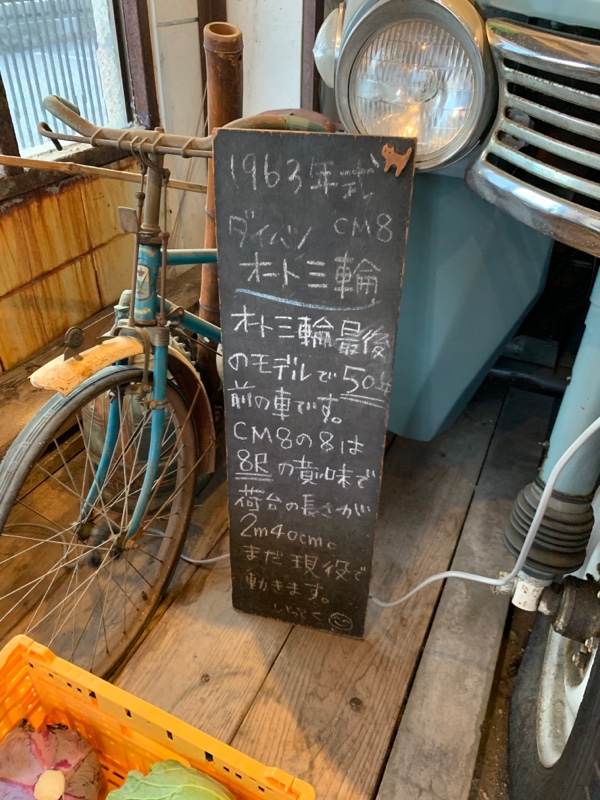 1963年式
ダイハツ CM8
オート三輪
オート三輪最後
のモデルで50年
前の車です。
CM8の8は
8尺の意味で
荷台の長さが
2m40cm。
まだ現役で
動きます。